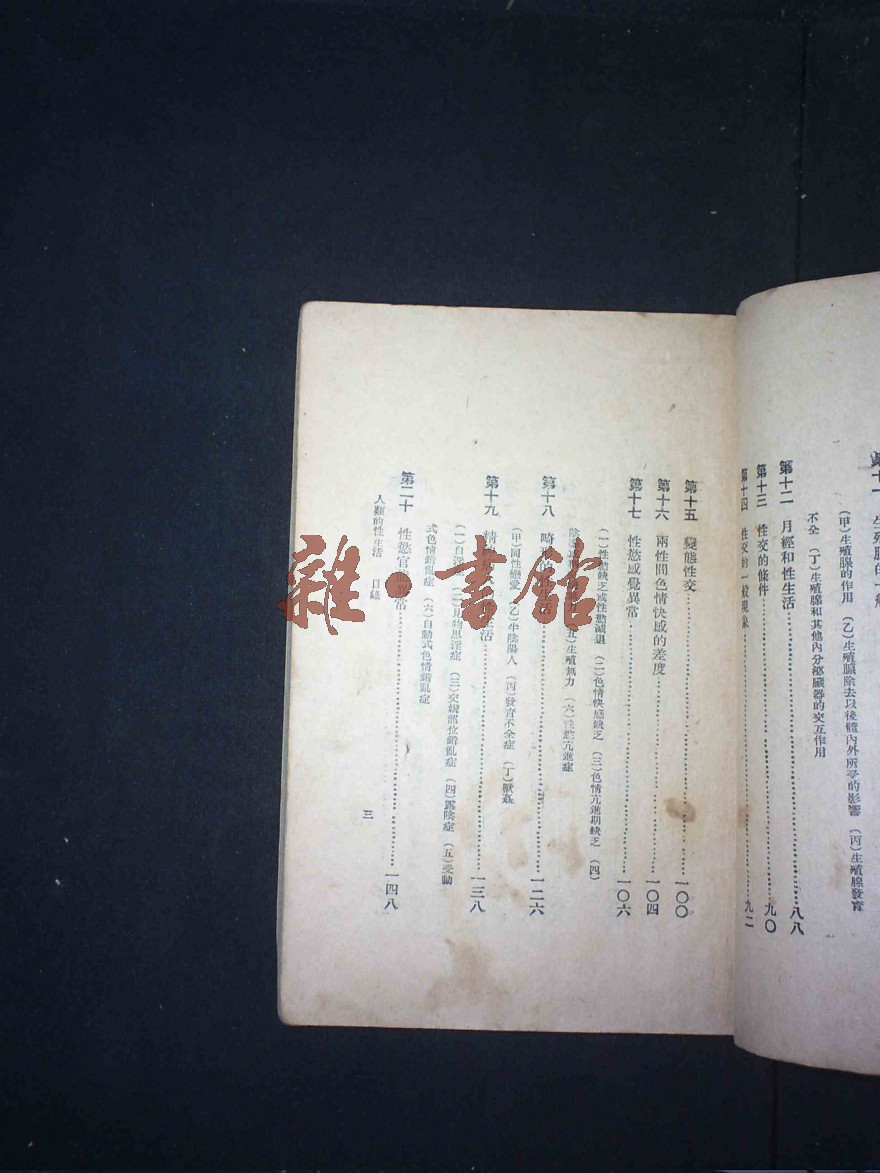 生殖腺的一般
(甲)生殖腺的作用 (乙)生殖腺除去以後體內外所受的影響 (丙)生殖腺發育
不全 (丁)生殖腺和其他內分泌臟器的交互作用
第十二 月經和性生活……八八
第十三 性交的條件……九〇
第十四 性交的一般現象……九二
第十五 變態性交……一〇〇
第十六 兩性間色情快感的差度……一〇四
第十七 性慾感覺異常……一〇六
(一)性慾缺乏或性慾減退 (二)色情快感缺乏 (三)色情亢進期缺乏 (四)
(五)生殖無力 (六)性慾亢進症
第十八 畸 的 活……一二六
(甲)同性戀愛 (乙)半陰陽人 (丙)發育不全症 (丁)獸姦
第十九 精 生活……一三八
(一)自淫症 (二)見物思淫症 (三)交媾部位錯亂症 (四)露陰症 (五)受動
式色情錯亂症 (六)自動式色情錯亂症
第二十 性慾官能異常……一四八
人類的性生活 目錄
三
雜·書館